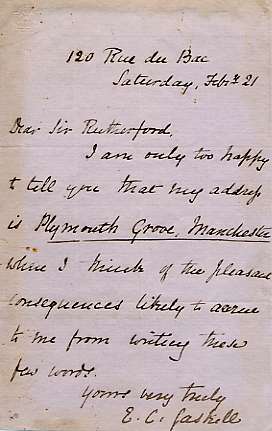 120 Rue du Bac
Saturday, Febry 21
Dear Sir Rutherford,
I am only too happy
to tell you that my address
is Plymouth Grove, Manchester
when I think of the pleasant
consequences likely to accrue
to me from writing these
few words.
Yours very truly
E. C. Gaskell